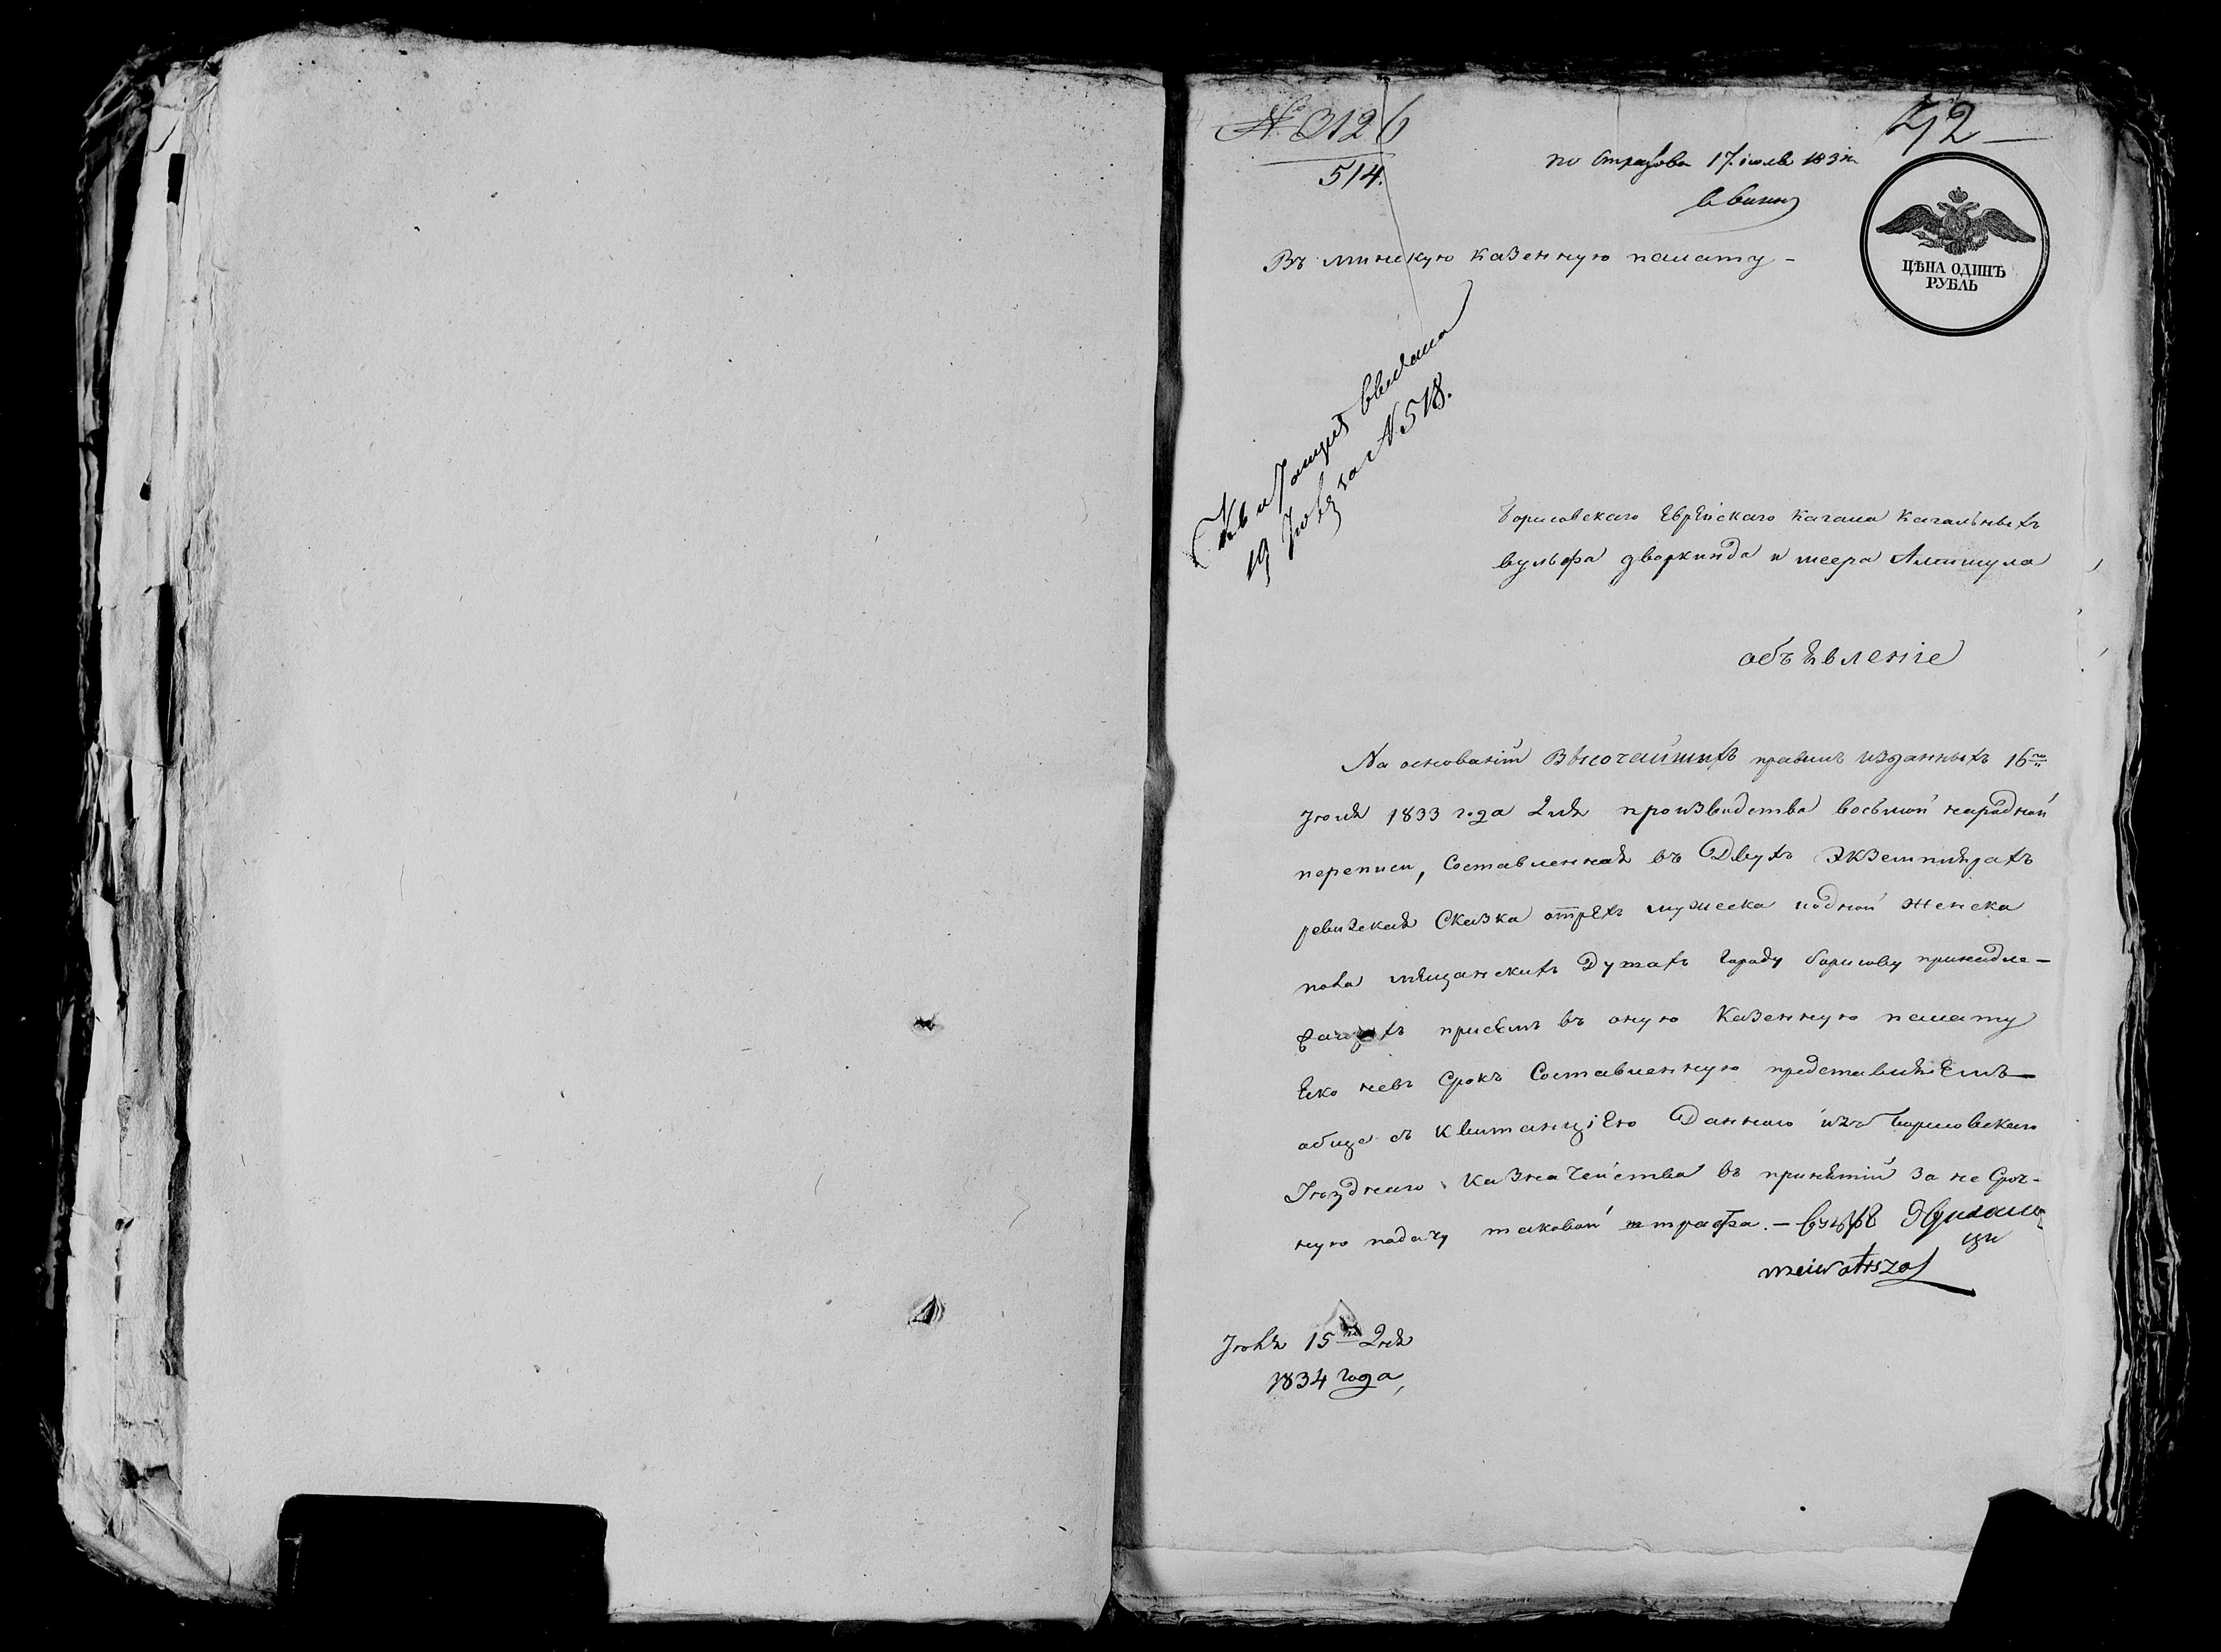 № 3126
514.
42
17. июля 183
ЦѢНА ОДИНЪ
РУБЛЬ
Въ минскую казенную палату -
Квитанция выдана
19 Июля за N 518.
Борисовскаго Еврейскаго Кагала Кагальныхъ
вульфа дворкинда и меера Алтшула
объявленіе
На основаніи Высочайшихъ правилъ изданныхъ 16го
Июня 1833 года для производства восьмой народной
переписи, Составленная въ Двухъ Экземплярахъ
ревизская Сказка отрехъ мужеска иодной женска
пола мещанскихъ Душахъ городу борисову принадле-
присемъ въ оную Казенную палату
яко невъ Срокъ Составленную представляемъ
обще съ квитанціею Данного изъ Борисовскаго
Уезднаго Казначейства въ принятіи за не Сроч-
ную подачу таковой штрафа. -
Июля 15го Дня
1834 года,